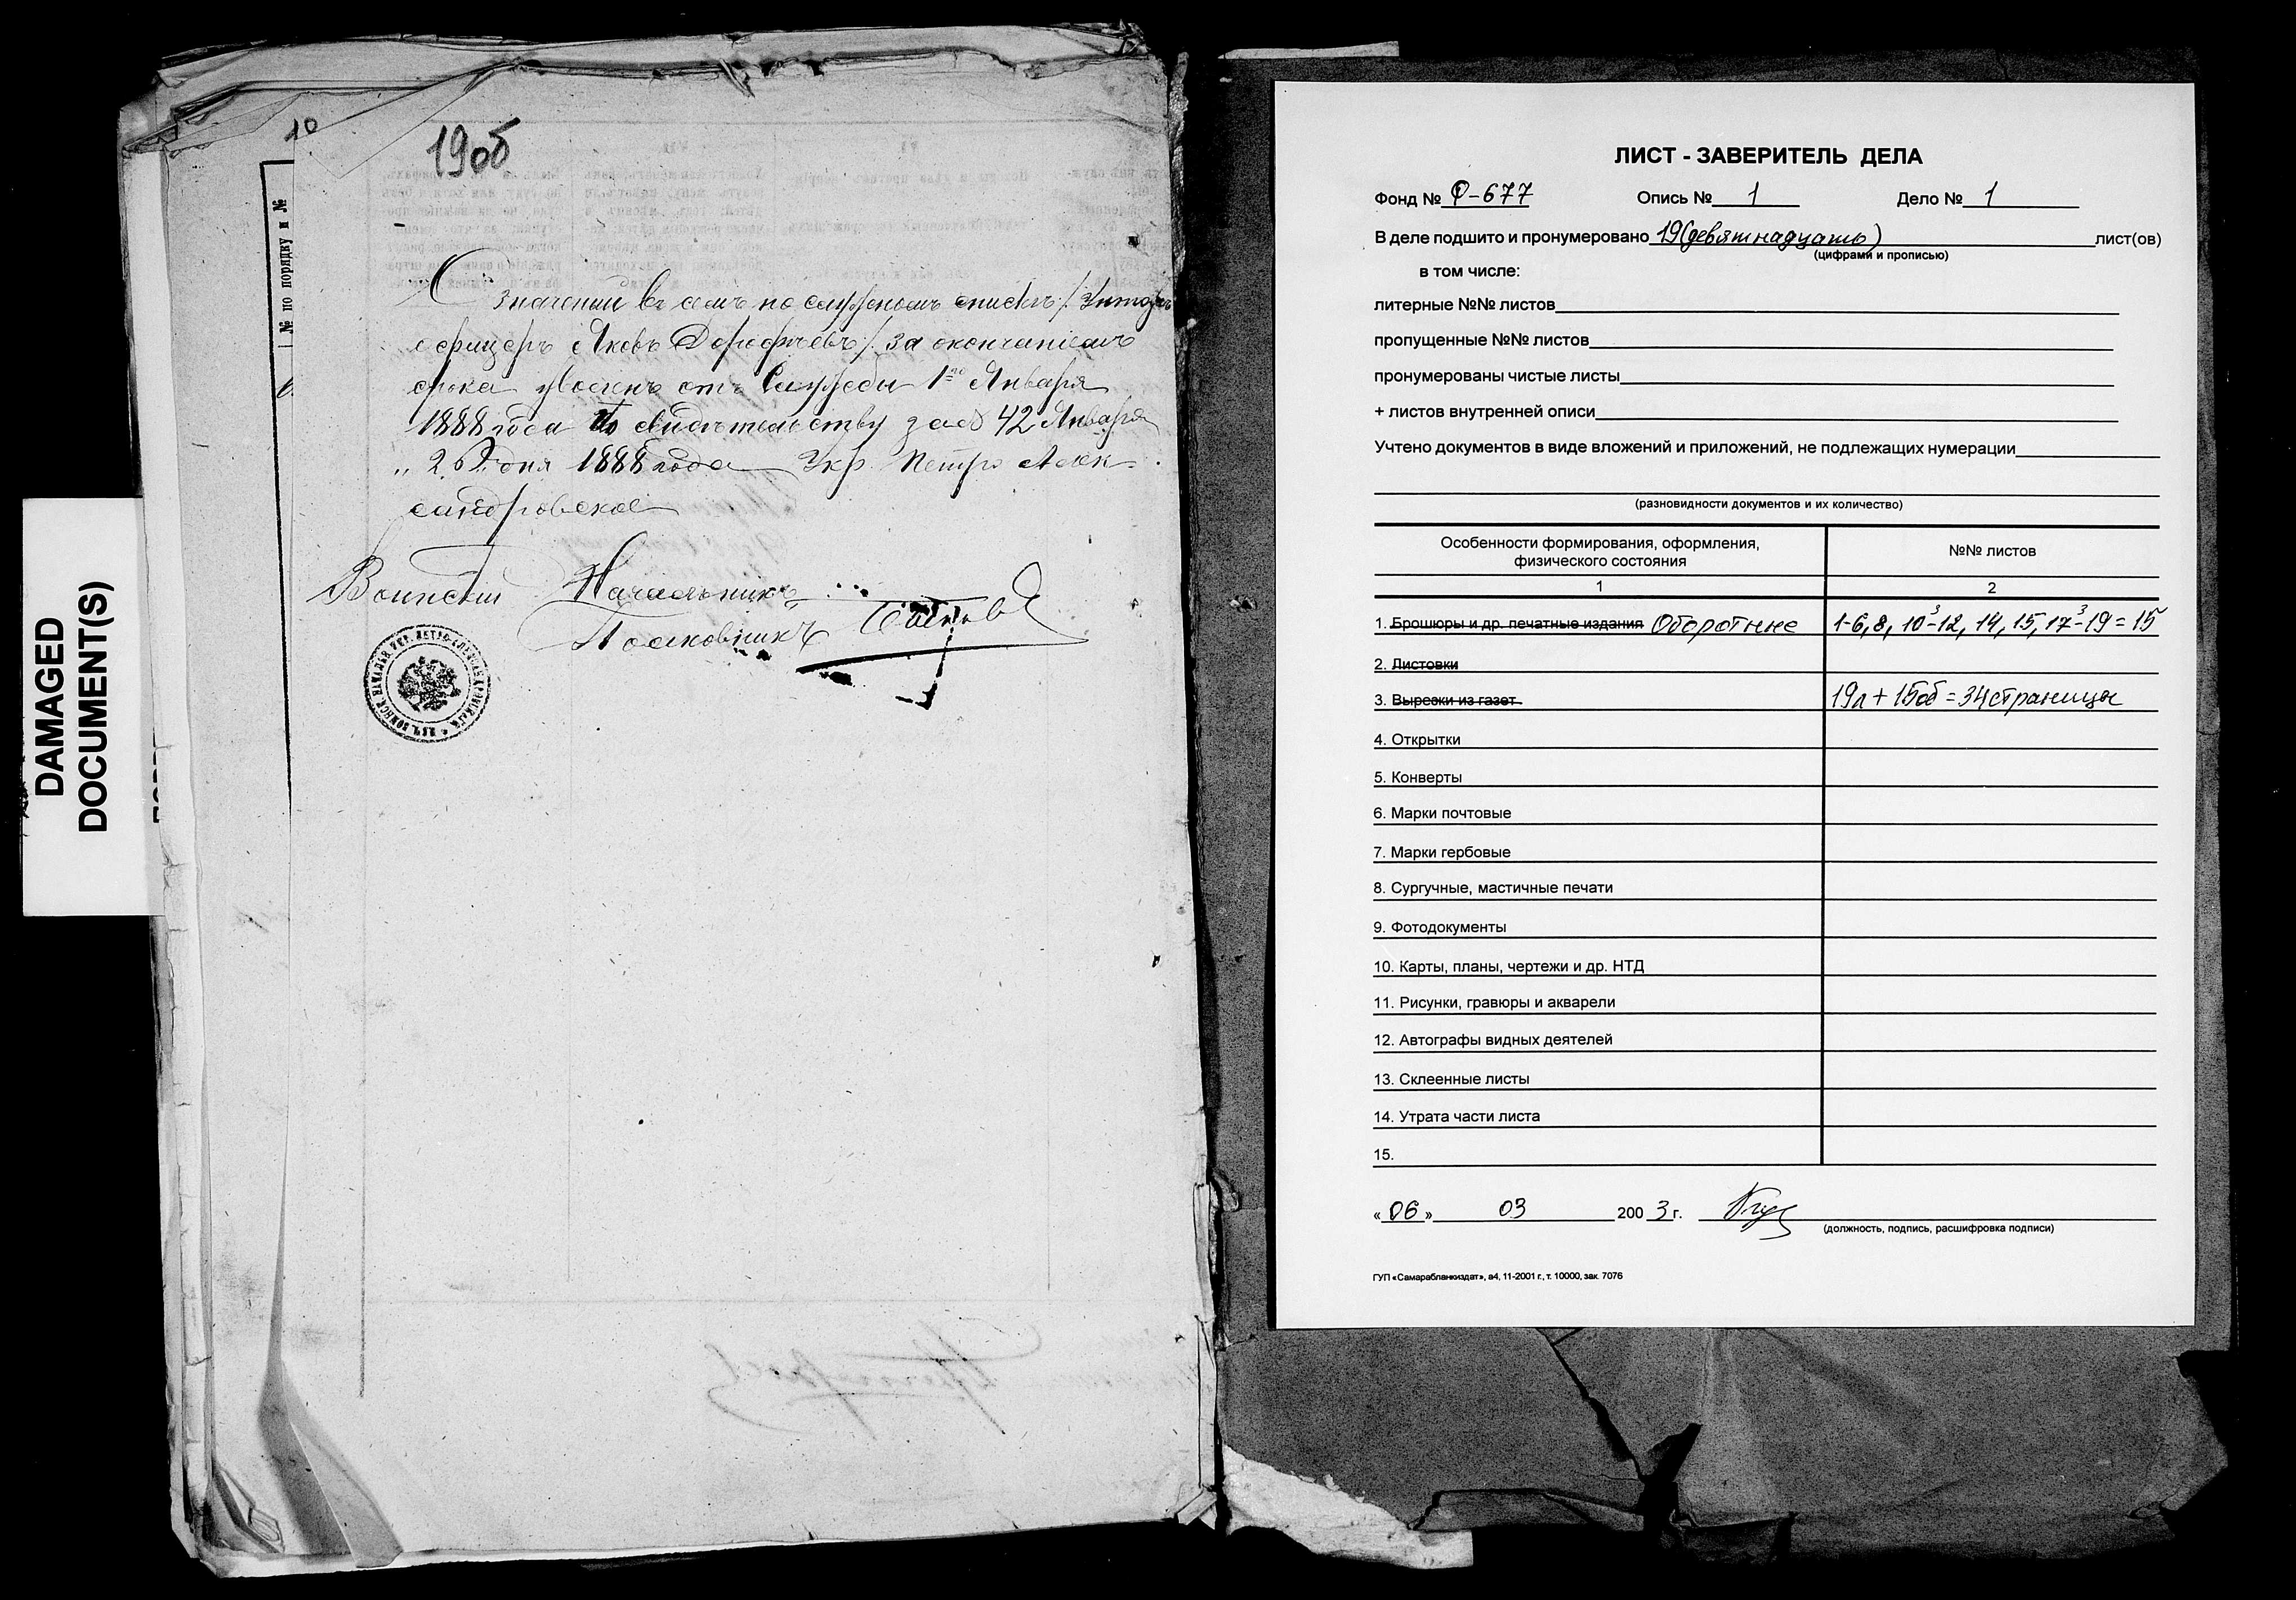 DAMAGED
DOCUMENT(S)
10
19об
№ по порядку и №
Значении въ семъ по служномъ списке /Унтеръ
офицеръ Яковъ Дорофѣевъ/ за окончаніемъ
срока уволенъ отъ Службы 1го Января
1888 года По свидѣтельству за № 42 Января
"26 дня 1888 года Укр. Петро Алек-
сандровское
Воинскій Начальникъ
Полковникъ
ЛИСТ - ЗАВЕРИТЕЛЬ ДЕЛА
Фонд № Ф-677 Опись № 1 Дело № 1
В деле подшито и пронумеровано 19 (девятнадцать) лист(ов)
(цифрами и прописью)
в том числе:
литерные №№ листов
пропущенные №№ листов
пронумерованы чистые листы
+ листов внутренней описи
Учтено документов в виде вложений и приложений, не подлежащих нумерации
(разновидности документов и их количество)
Особенности формирования, оформления,
физического состояния
№№ листов
1 2
1. Брошюры и др. печатные издания Оборотные 1-6, 8, 10-³12, 14, 15, 17-³19 = 15
2. Листовки
3. Вырезки из газет 19л + 15об = 34 страницы
4. Открытки
5. Конверты
6. Марки почтовые
7. Марки гербовые
8. Сургучные, мастичные печати
9. Фотодокументы
10. Карты, планы, чертежи и др. НТД
11. Рисунки, гравюры и акварели
12. Автографы видных деятелей
13. Склеенные листы
14. Утрата части листа
15.
« 06 » 03 200 3 г.
(должность, подпись, расшифровка подписи)
ГУП «Самарабланкиздат», а4, 11-2001 г., т. 10000, зак. 7076